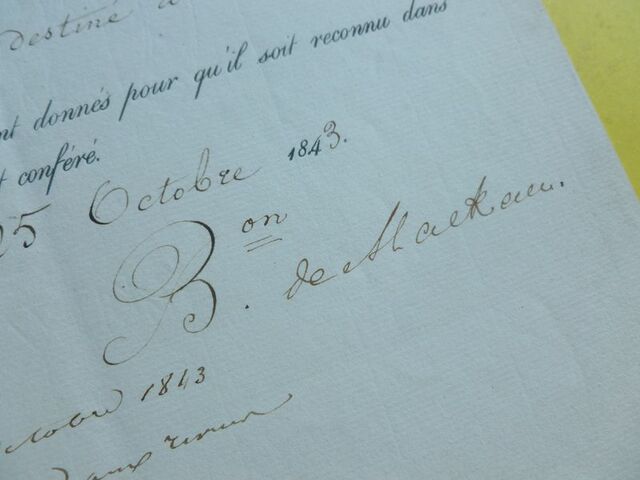 destiné
nt donnés pour qu'il soit reconnu dans
t conféré.
25 Octobre 1843.
Bon de Mackau.
ctobre 1843